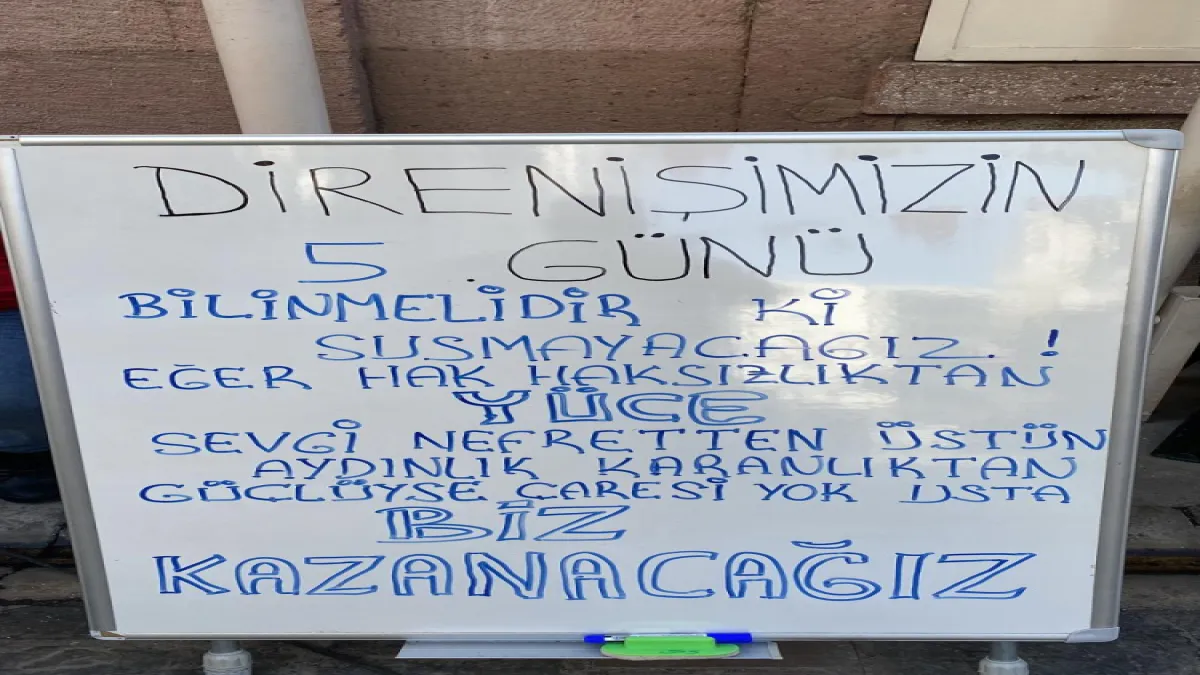 DİRENİŞİMİZİN
5 .GÜNÜ
BİLİNMELİDİR Kİ
SUSMAYACAGIZ. !
EĞER HAK HAKSIZLIKTAN
YÜCE
SEVGİ NEFRETTEN ÜSTÜN
AYDINLIK KARANLIKTAN
GÜÇLÜYSE ÇARESİ YOK USTA
BİZ
KAZANACAĞIZ